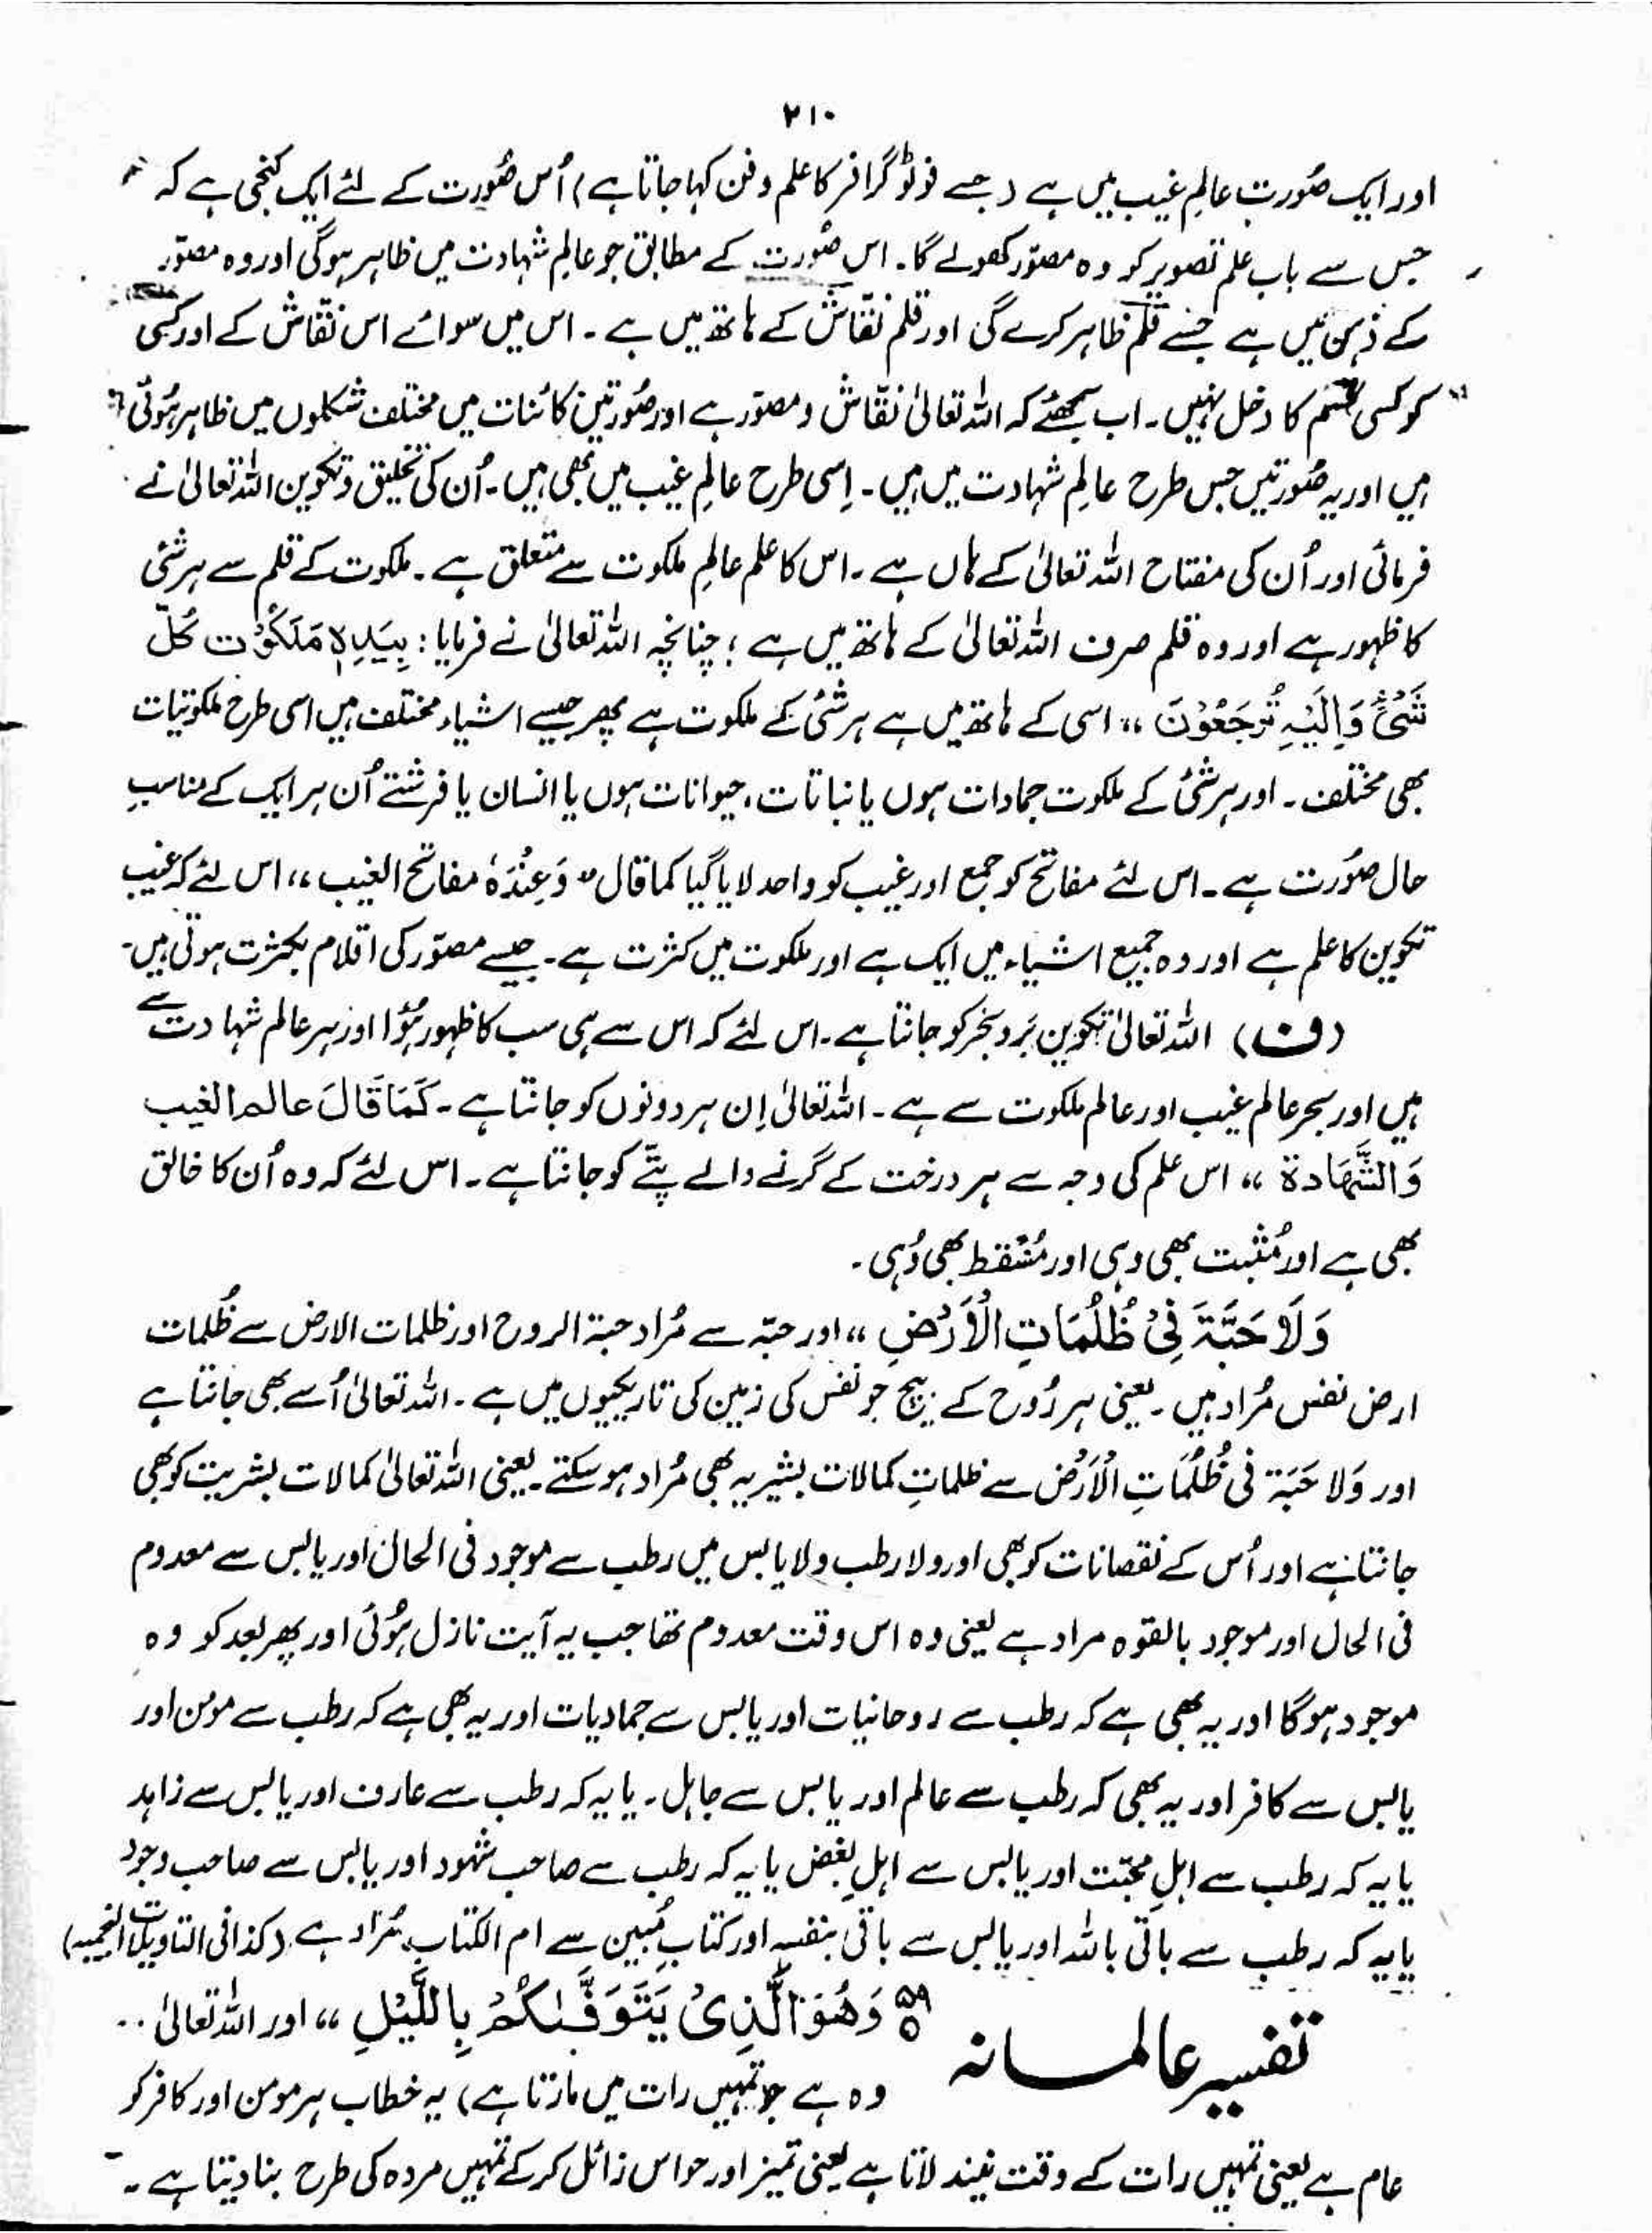 ۲۱۰
اور ایک صُورت عالمِ غیب میں ہے (جسے فوٹو گرافر کا علم و فن کہا جاتا ہے) اُس صُورت کے لئے ایک کنجی ہے کہ
جس سے باب علم تصویر کو وہ مصوّر کھولے گا۔ اس صُورت کے مطابق جو عالمِ شہادت میں ظاہر ہوگی اور وہ مصوّر
کے ذہن میں ہے جسے قلم ظاہر کرے گی اور قلم نقّاش کے ہاتھ میں ہے۔ اس میں سوائے اس نقّاش کے اور کسی
کو کسی قسم کا دخل نہیں۔ اب سمجھئے کہ اللہ تعالیٰ نقّاش و مصوّر ہے اور صُورتیں کائنات میں مختلف شکلوں میں ظاہر ہوئی
ہیں اور یہ صُورتیں جس طرح عالمِ شہادت میں ہیں۔ اِسی طرح عالمِ غیب میں بھی ہیں۔ اُن کی تخلیق و تکوین اللہ تعالیٰ نے
فرمائی اور اُن کی مفتاح اللہ تعالیٰ کے ہاں ہے۔ اس کا علم عالمِ ملکوت سے متعلق ہے۔ ملکوت کے قلم سے ہر شئی
کا ظہور ہے اور وہ قلم صرف اللہ تعالیٰ کے ہاتھ میں ہے؛ چنانچہ اللہ تعالیٰ نے فرمایا: بِیَدِہٖ مَلَکُوْت کُلِّ
شَیْءٍ وَاِلَیْہِ تُرْجَعُوْنَ ،، اسی کے ہاتھ میں ہے ہر شئی کے ملکوت ہے پھر جیسے اشیاء مختلف ہیں اسی طرح ملکوتیات
بھی مختلف۔ اور ہر شئی کے ملکوت جمادات ہوں یا نباتات، حیوانات ہوں یا انسان یا فرشتے اُن ہر ایک کے مناسبِ
حال صُورت ہے۔ اس لئے مفاتح کو جمع اور غیب کو واحد لایا گیا کما قال ” وَعِنْدَہٗ مفاتح الغیب ،، اس لئے کہ غیب
تکوین کا علم ہے اور وہ جمیع اشیاء میں ایک ہے اور ملکوت میں کثرت ہے۔ جیسے مصوّر کی اقلام بکثرت ہوتی ہیں۔
(ف) اللہ تعالیٰ تکوین بَر و بحر کو جانتا ہے۔ اس لئے کہ اس سے ہی سب کا ظہور ہُوا اور ہر عالم شہادت سے
ہیں اور بحر عالم غیب اور عالم ملکوت سے ہے۔ اللہ تعالیٰ اِن ہر دونوں کو جانتا ہے۔ کَمَا قَالَ عالم الغیب
وَالشَّھَادۃ ،، اس علم کی وجہ سے ہر درخت کے گرنے والے پتّے کو جانتا ہے۔ اس لئے کہ وہ اُن کا خالق
بھی ہے اور مُثبت بھی وہی اور مُسْقط بھی وُہی۔
وَلَا حَبَّۃَ فِیْ ظُلُمَاتِ الْاَرْضِ ،، اور حبّہ سے مُراد حبۃ الروح اور ظلمات الارض سے ظُلمات
ارض نفس مُراد ہیں۔ یعنی ہر رُوح کے بیج جو نفس کی زمین کی تاریکیوں میں ہے۔ اللہ تعالیٰ اُسے بھی جانتا ہے
اور وَلا حَبَۃ فی ظُلُمَاتِ الْاَرْض سے ظلماتِ کمالات بشیریہ بھی مُراد ہو سکتے۔ یعنی اللہ تعالیٰ کمالات بشریت کو بھی
جانتا ہے اور اُس کے نقصانات کو بھی اور ولا رطب ولا یابس میں رطب سے موجود فی الحال اور یابس سے معدوم
فی الحال اور موجود بالقوہ مراد ہے یعنی وہ اس وقت معدوم تھا جب یہ آیت نازل ہوئی اور پھر بعد کو وہ
موجود ہو گا اور یہ بھی ہے کہ رطب سے روحانیات اور یابس سے جمادیات اور یہ بھی ہے کہ رطب سے مومن اور
یابس سے کافر اور یہ بھی کہ رطب سے عالم اور یابس سے جاہل۔ یا یہ کہ رطب سے عارف اور یابس سے زاہد
یا یہ کہ رطب سے اہلِ محبّت اور یابس سے اہلِ بُغض یا یہ کہ رطب سے صاحب شہود اور یابس سے صاحب وجود
یا یہ کہ رطب سے باقی باللہ اور یابس سے باقی بنفسہ اور کتاب مُبین سے ام الکتاب مُراد ہے (کذا فی التاویلات النجمیہ)
تفسیر عالمانہ ۵۹ وَھُوَ الَّذِیْ یَتَوَفّٰىکُمْ بِالَّیْلِ ،، اور اللہ تعالیٰ
وہ ہے جو تمہیں رات میں مارتا ہے) یہ خطاب ہر مومن اور کافر کو
عام ہے یعنی تمہیں رات کے وقت نیند لاتا ہے یعنی تمیز اور حواس زائل کر کے تمہیں مردہ کی طرح بنا دیتا ہے۔